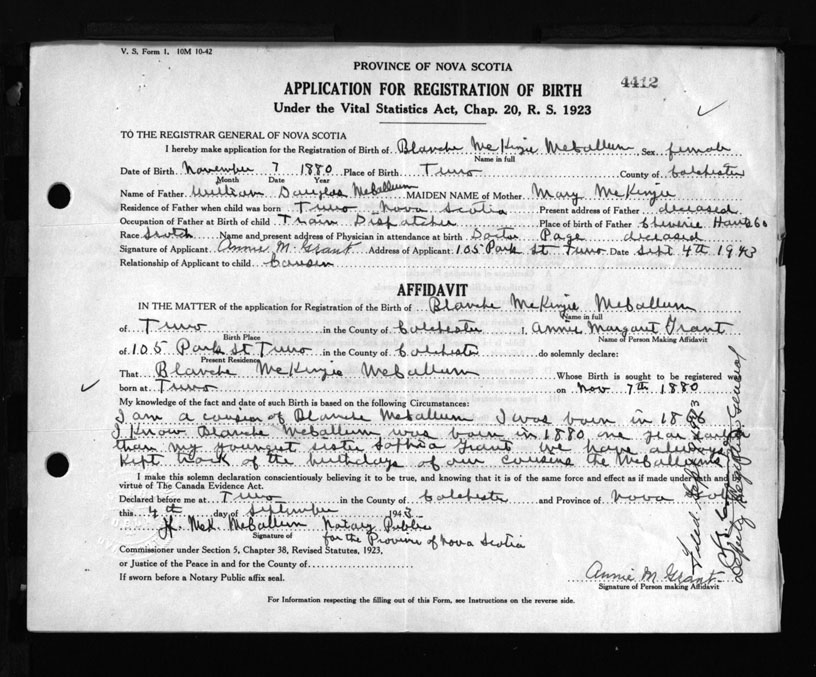 V. S. Form 1. 10M 10-42
PROVINCE OF NOVA SCOTIA
4412
APPLICATION FOR REGISTRATION OF BIRTH
Under the Vital Statistics Act, Chap. 20, R. S. 1923
TO THE REGISTRAR GENERAL OF NOVA SCOTIA
I hereby make application for the Registration of Birth of Blanche McKinzie McCallum Sex female
Name in full
Date of Birth November 7 1880 Place of Birth Truro County of Colchester
Month Date Year
Name of Father William Douglas McCallum MAIDEN NAME of Mother Mary McKinzie
Residence of Father when child was born Truro Nova Scotia Present address of Father deceased
Occupation of Father at Birth of child Train Dispatcher Place of birth of Father Cheverie Hants Co
Race Scotch Name and present address of Physician in attendance at birth Doctor Page deceased
Signature of Applicant Annie M. Grant Address of Applicant 105 Park St Truro Date Sept 4th 1943
Relationship of Applicant to child Cousin
AFFIDAVIT
IN THE MATTER of the application for Registration of the Birth of Blanche McKinzie McCallum
Name in full
of Truro in the County of Colchester I, Annie Margaret Grant
Birth Place Name of Person Making Affidavit
of 105 Park St Truro in the County of Colchester do solemnly declare:
Present Residence
That Blanche McKinzie McCallum Whose Birth is sought to be registered was
born at Truro on Nov 7th 1880
My knowledge of the fact and date of such Birth is based on the following Circumstances:
I am a cousin of Blanche McCallum I was born in
I know Blanche McCallum was born in 1880 one year
than my youngest sister Sophia Grant We have always
kept track of the birthdays of our cousins the McCallums
I make this solemn declaration conscientiously believing it to be true, and knowing that it is of the same force and effect as if made under oath and
virtue of The Canada Evidence Act.
Declared before me at Truro in the County of Colchester and Province of Nova Scotia
this 4th day of September 1943
H. McK. McCallum Notary Public
Signature of for the Province of Nova Scotia
Commissioner under Section 5, Chapter 38, Revised Statutes, 1923,
or Justice of the Peace in and for the County of
If sworn before a Notary Public affix seal.
Annie M. Grant
Signature of Person making Affidavit
For Information respecting the filling out of this Form, see Instructions on the reverse side.
Filed.
Deputy Registrar General